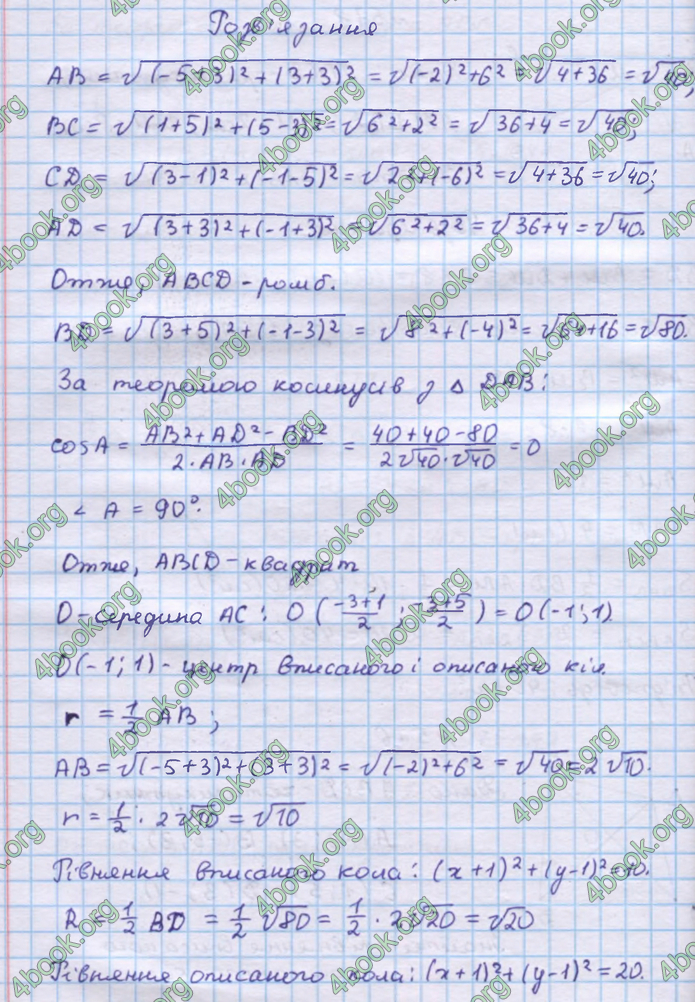 Розв'язання
AB = √(-5+3)²+(3+3)² = √(-2)²+6² = √4+36 = √40;
BC = √(1+5)²+(5-3)² = √6²+2² = √36+4 = √40;
CD = √(3-1)²+(-1-5)² = √2²+(-6)² = √4+36 = √40;
AD = √(3+3)²+(-1+3)² = √6²+2² = √36+4 = √40.
Отже, ABCD - ромб.
BD = √(3+5)²+(-1-3)² = √8²+(-4)² = √64+16 = √80.
За теоремою косинусів з △ DAB:
cos A = AB²+AD²-BD² / 2·AB·AD = 40+40-80 / 2√40·√40 = 0
∠ A = 90°.
Отже, ABCD - квадрат
O - середина AC: O (-3+1 / 2; -3+5 / 2) = O(-1; 1).
O(-1; 1) - центр вписаного і описаного кіл.
r = 1/2 AB;
AB = √(-5+3)²+(3+3)² = √(-2)²+6² = √40 = 2√10.
r = 1/2 · 2√10 = √10
Рівняння вписаного кола: (x+1)²+(y-1)²=10.
R = 1/2 BD = 1/2 √80 = 1/2 · 2√20 = √20
Рівняння описаного кола: (x+1)²+(y-1)²=20.
4book.org